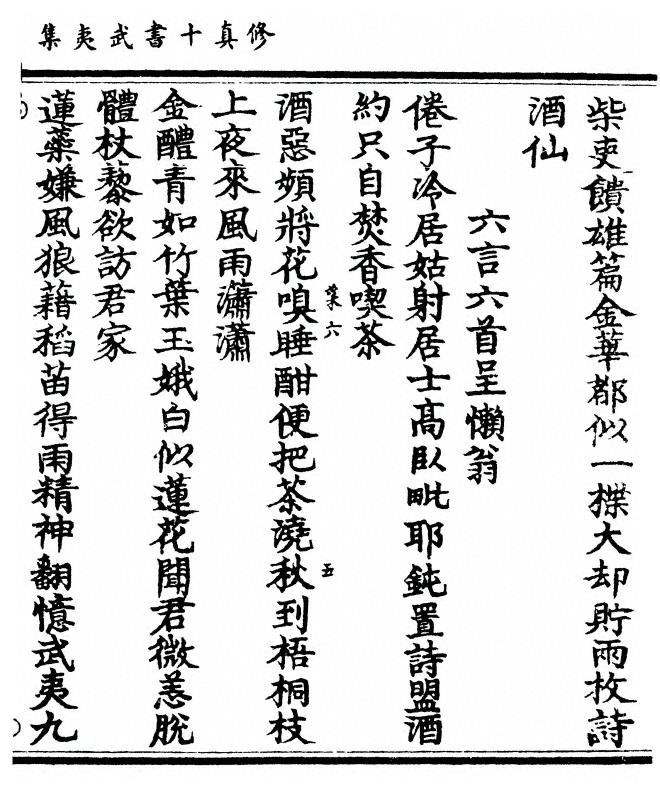 修真十書武夷集
柴吏饋雄篇金華都似一㩻大却貯兩枚詩
酒仙
六言六首呈懶翁
倦子冷居姑射居士高臥毗耶鈍置詩盟酒
約只自焚香喫茶
酒惡頻將花嗅睡酣便把茶澆秋到梧桐枝
葉六
五
上夜來風雨瀟瀟
金醴青如竹葉玉娥白似蓮花聞君微恙脫
體杖藜欲訪君家
蓮藥嫌風狼藉稻苗得雨精神翻憶武夷九